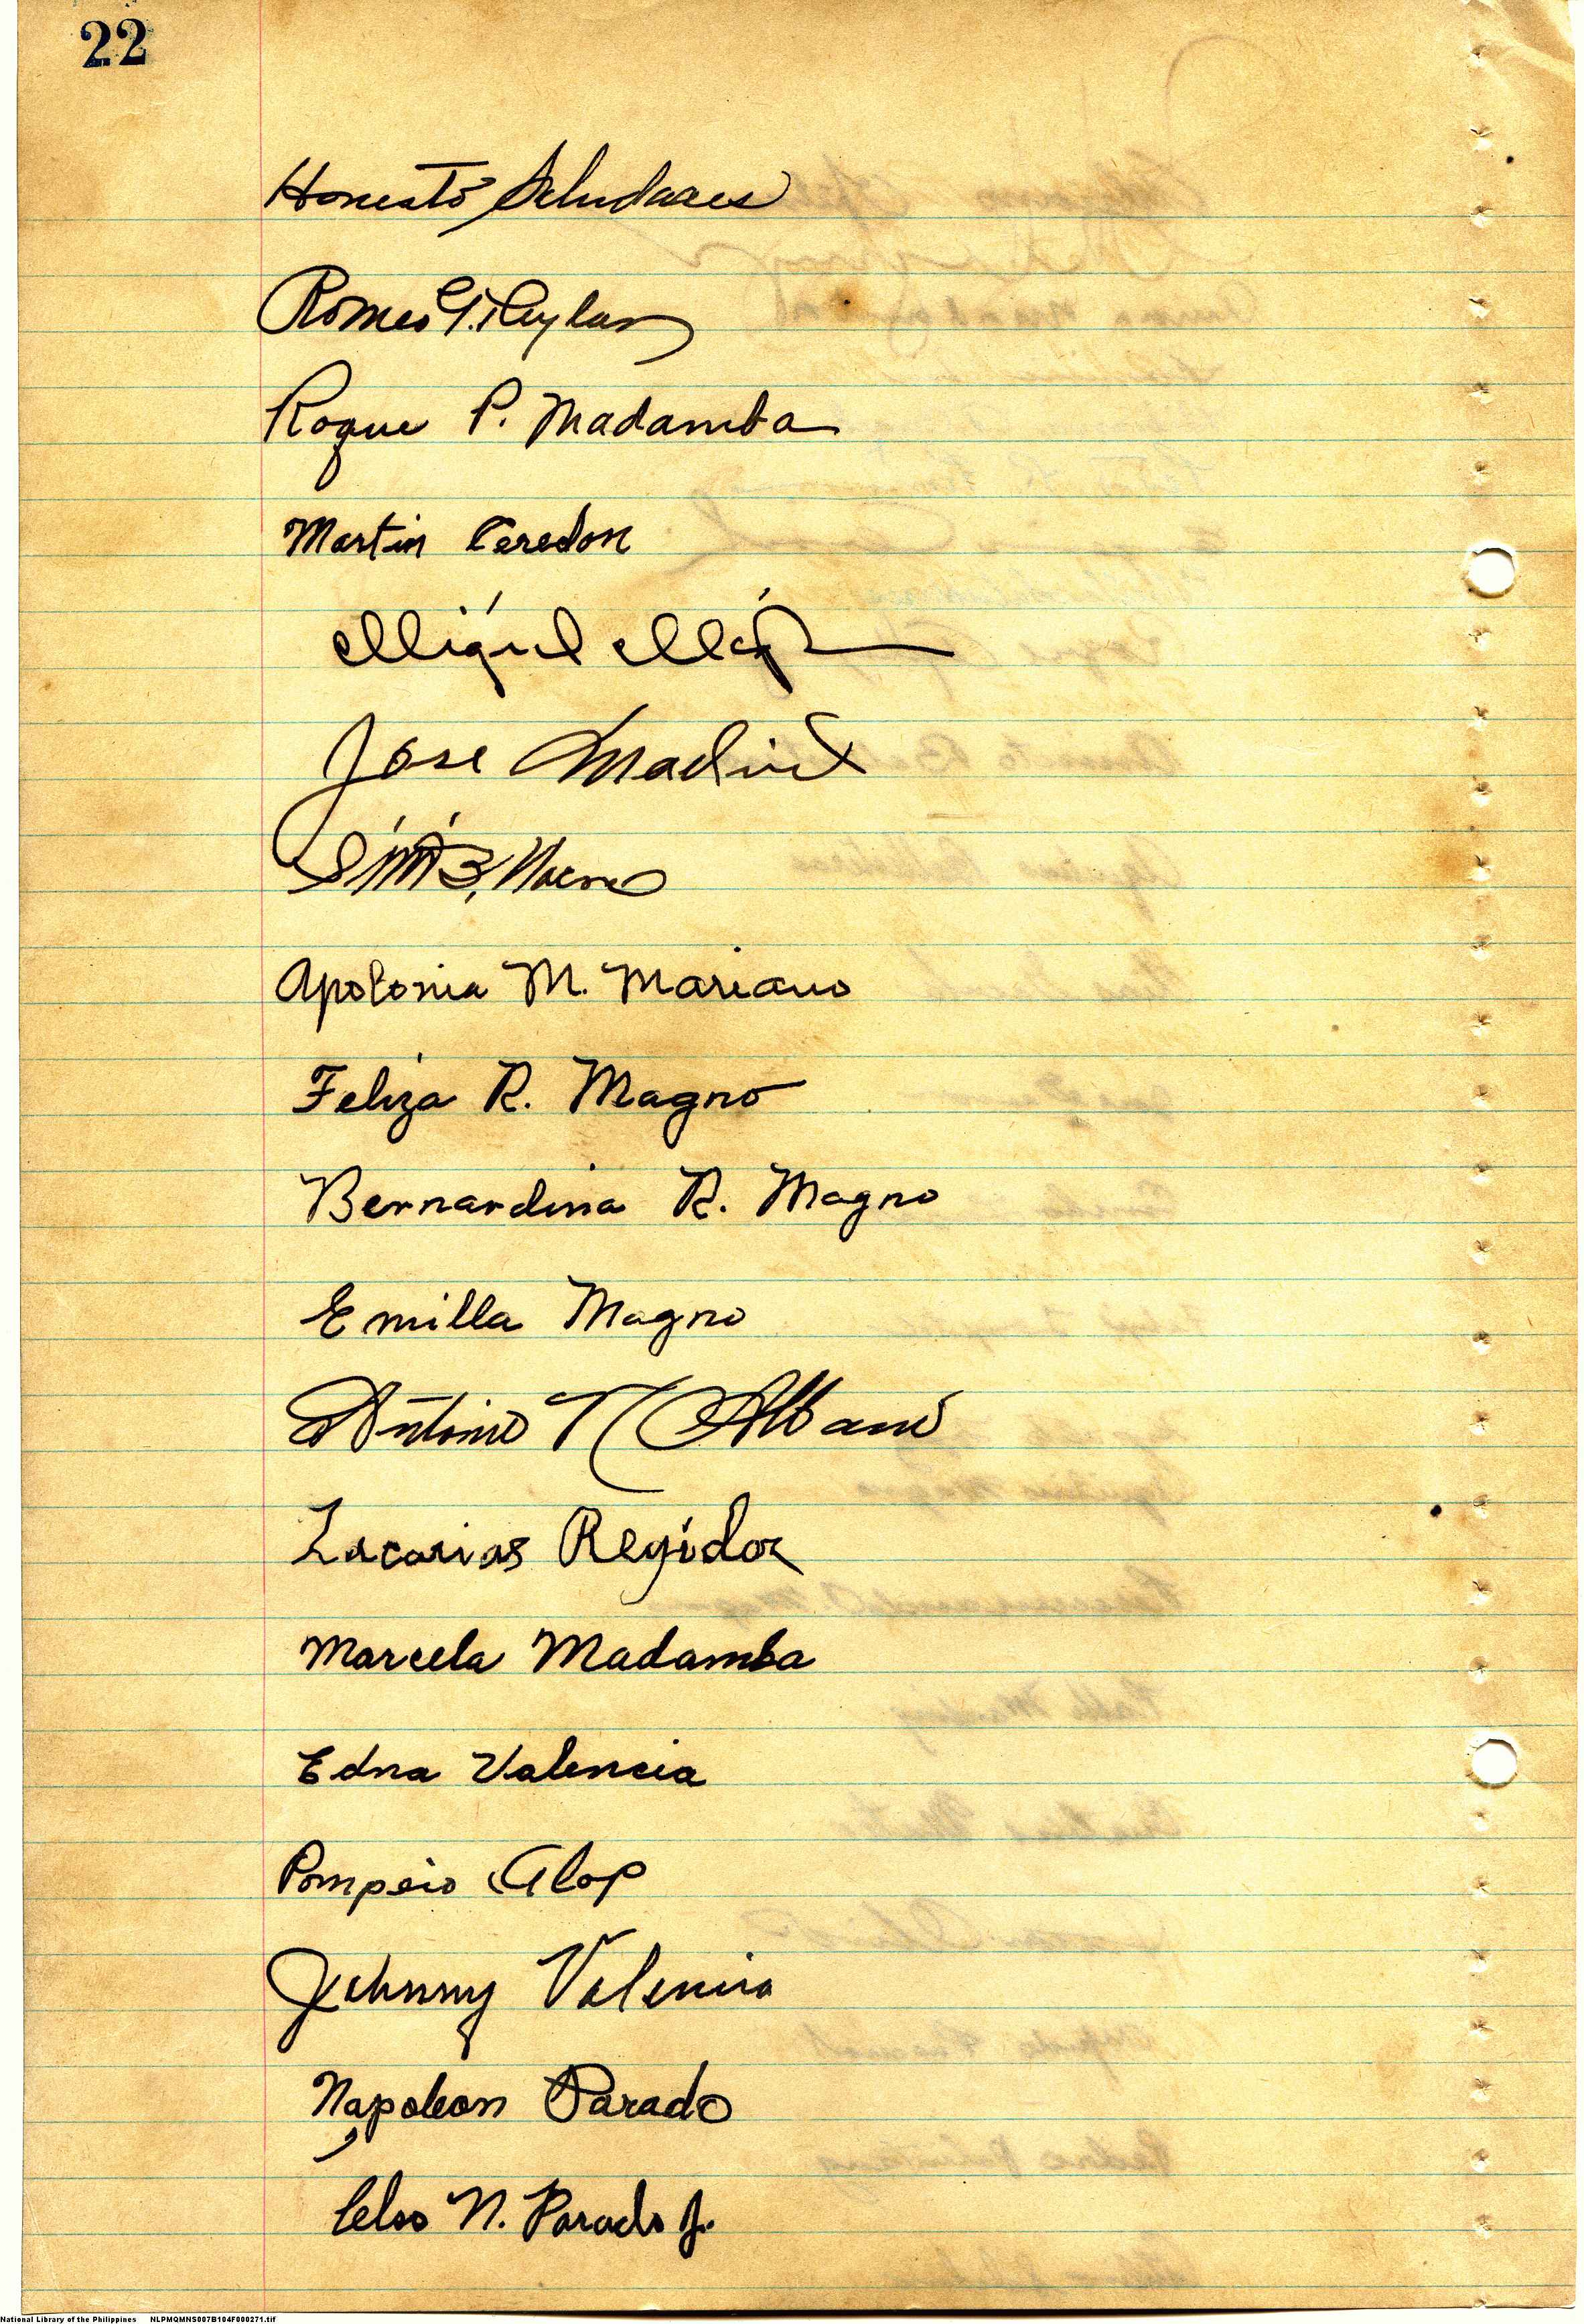 22
Honesto
Romeo
Roque P. Madamba
Martin Ceredon
Miguel
Jose Madrid
Apolonia M. Mariano
Feliza R. Magno
Bernardina R. Magno
Emilla Magno
Antonio T. Albano
Zacarias Regidor
Marcela Madamba
Edna Valencia
Pompeio Alop
Johnny Valencia
Napoleon Parado
Celso N. Parado Jr.
National Library of the Philippines NLPMQMNS007B104F000271.tif